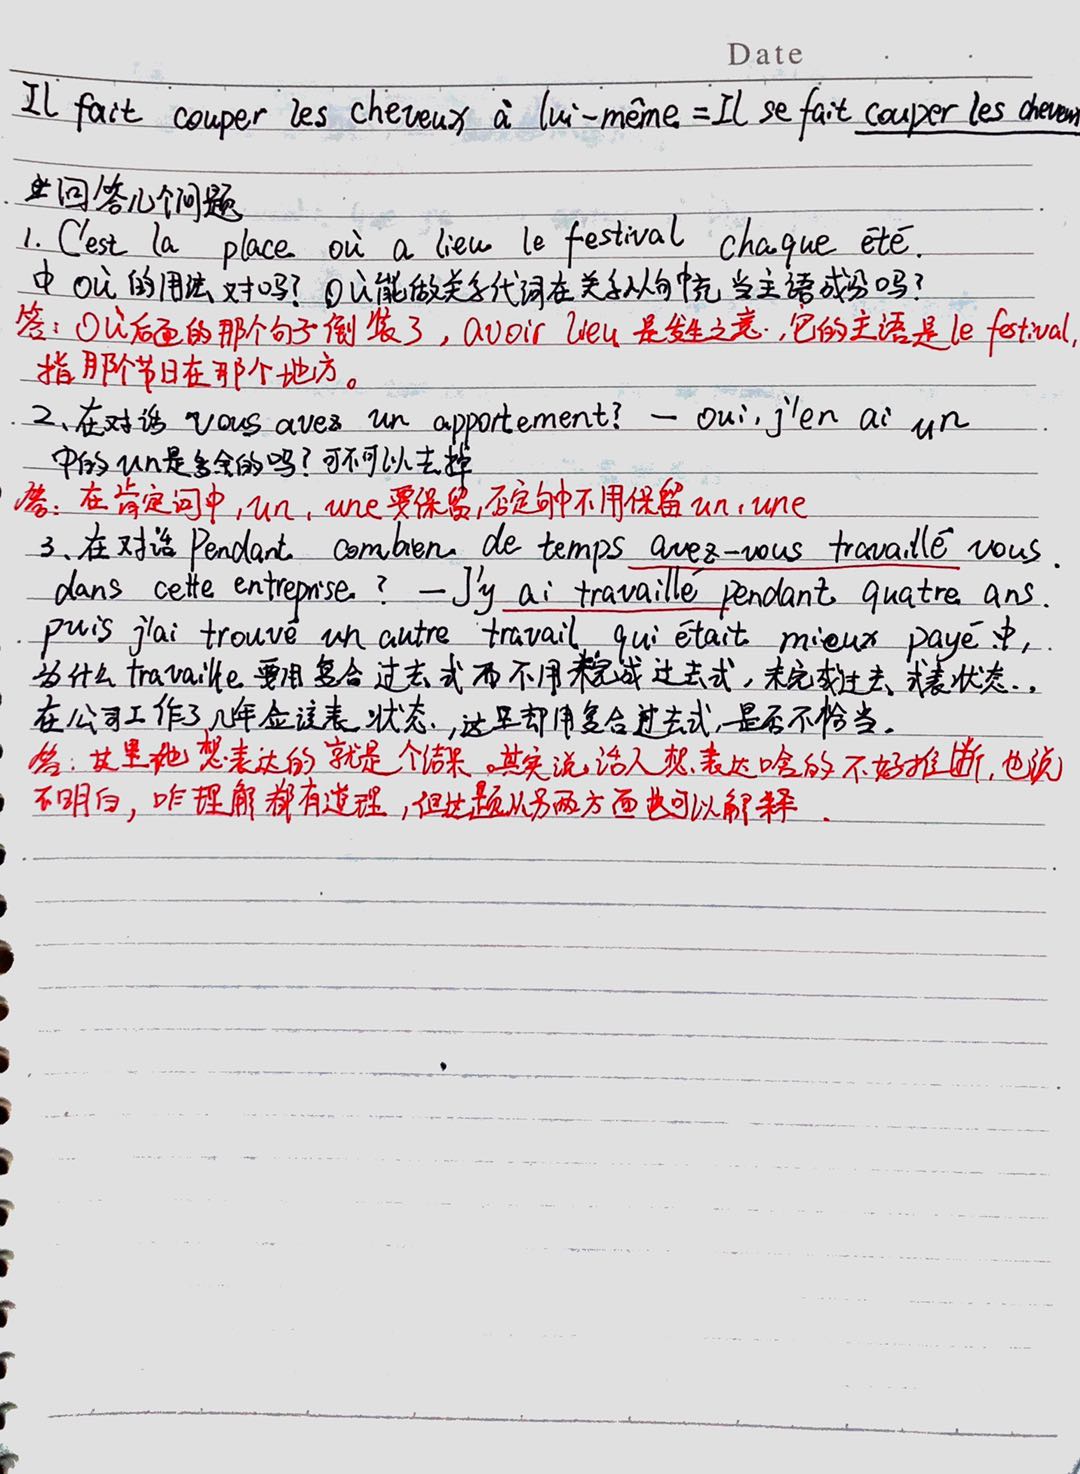 Date
Il fait couper les cheveux à lui-même = Il se fait couper les cheveux
回答几个问题
1. C'est la place où a lieu le festival chaque été.
中 où 的用法对吗? où能做关系代词在关系从句中充当主语成分吗?
答: où后面的那个句子倒装了, avoir lieu 是发生之意, 它的主语是 le festival,
指那个节日在那个地方。
2、在对话 vous avez un appartement? — oui, j'en ai un
中的 un是多余的吗? 可不可以去掉
答: 在肯定词中, un, une要保留, 否定句中不用保留 un, une
3、在对话 Pendant combien de temps avez-vous travaillé vous
dans cette entreprise? — J'y ai travaillé pendant quatre ans.
puis j'ai trouvé un autre travail qui était mieux payé 中,
为什么 travaille 要用复合过去式而不用未完成过去式, 未完成过去式表状态.,
在公司工作了几年应该表状态., 这里却用复合过去式, 是否不恰当.
答: 这里他想表达的就是个结果。其实说话人想表达啥的不好推断, 也说
不明白, 咋理解都有道理, 但此题从另两方面也可以解释.